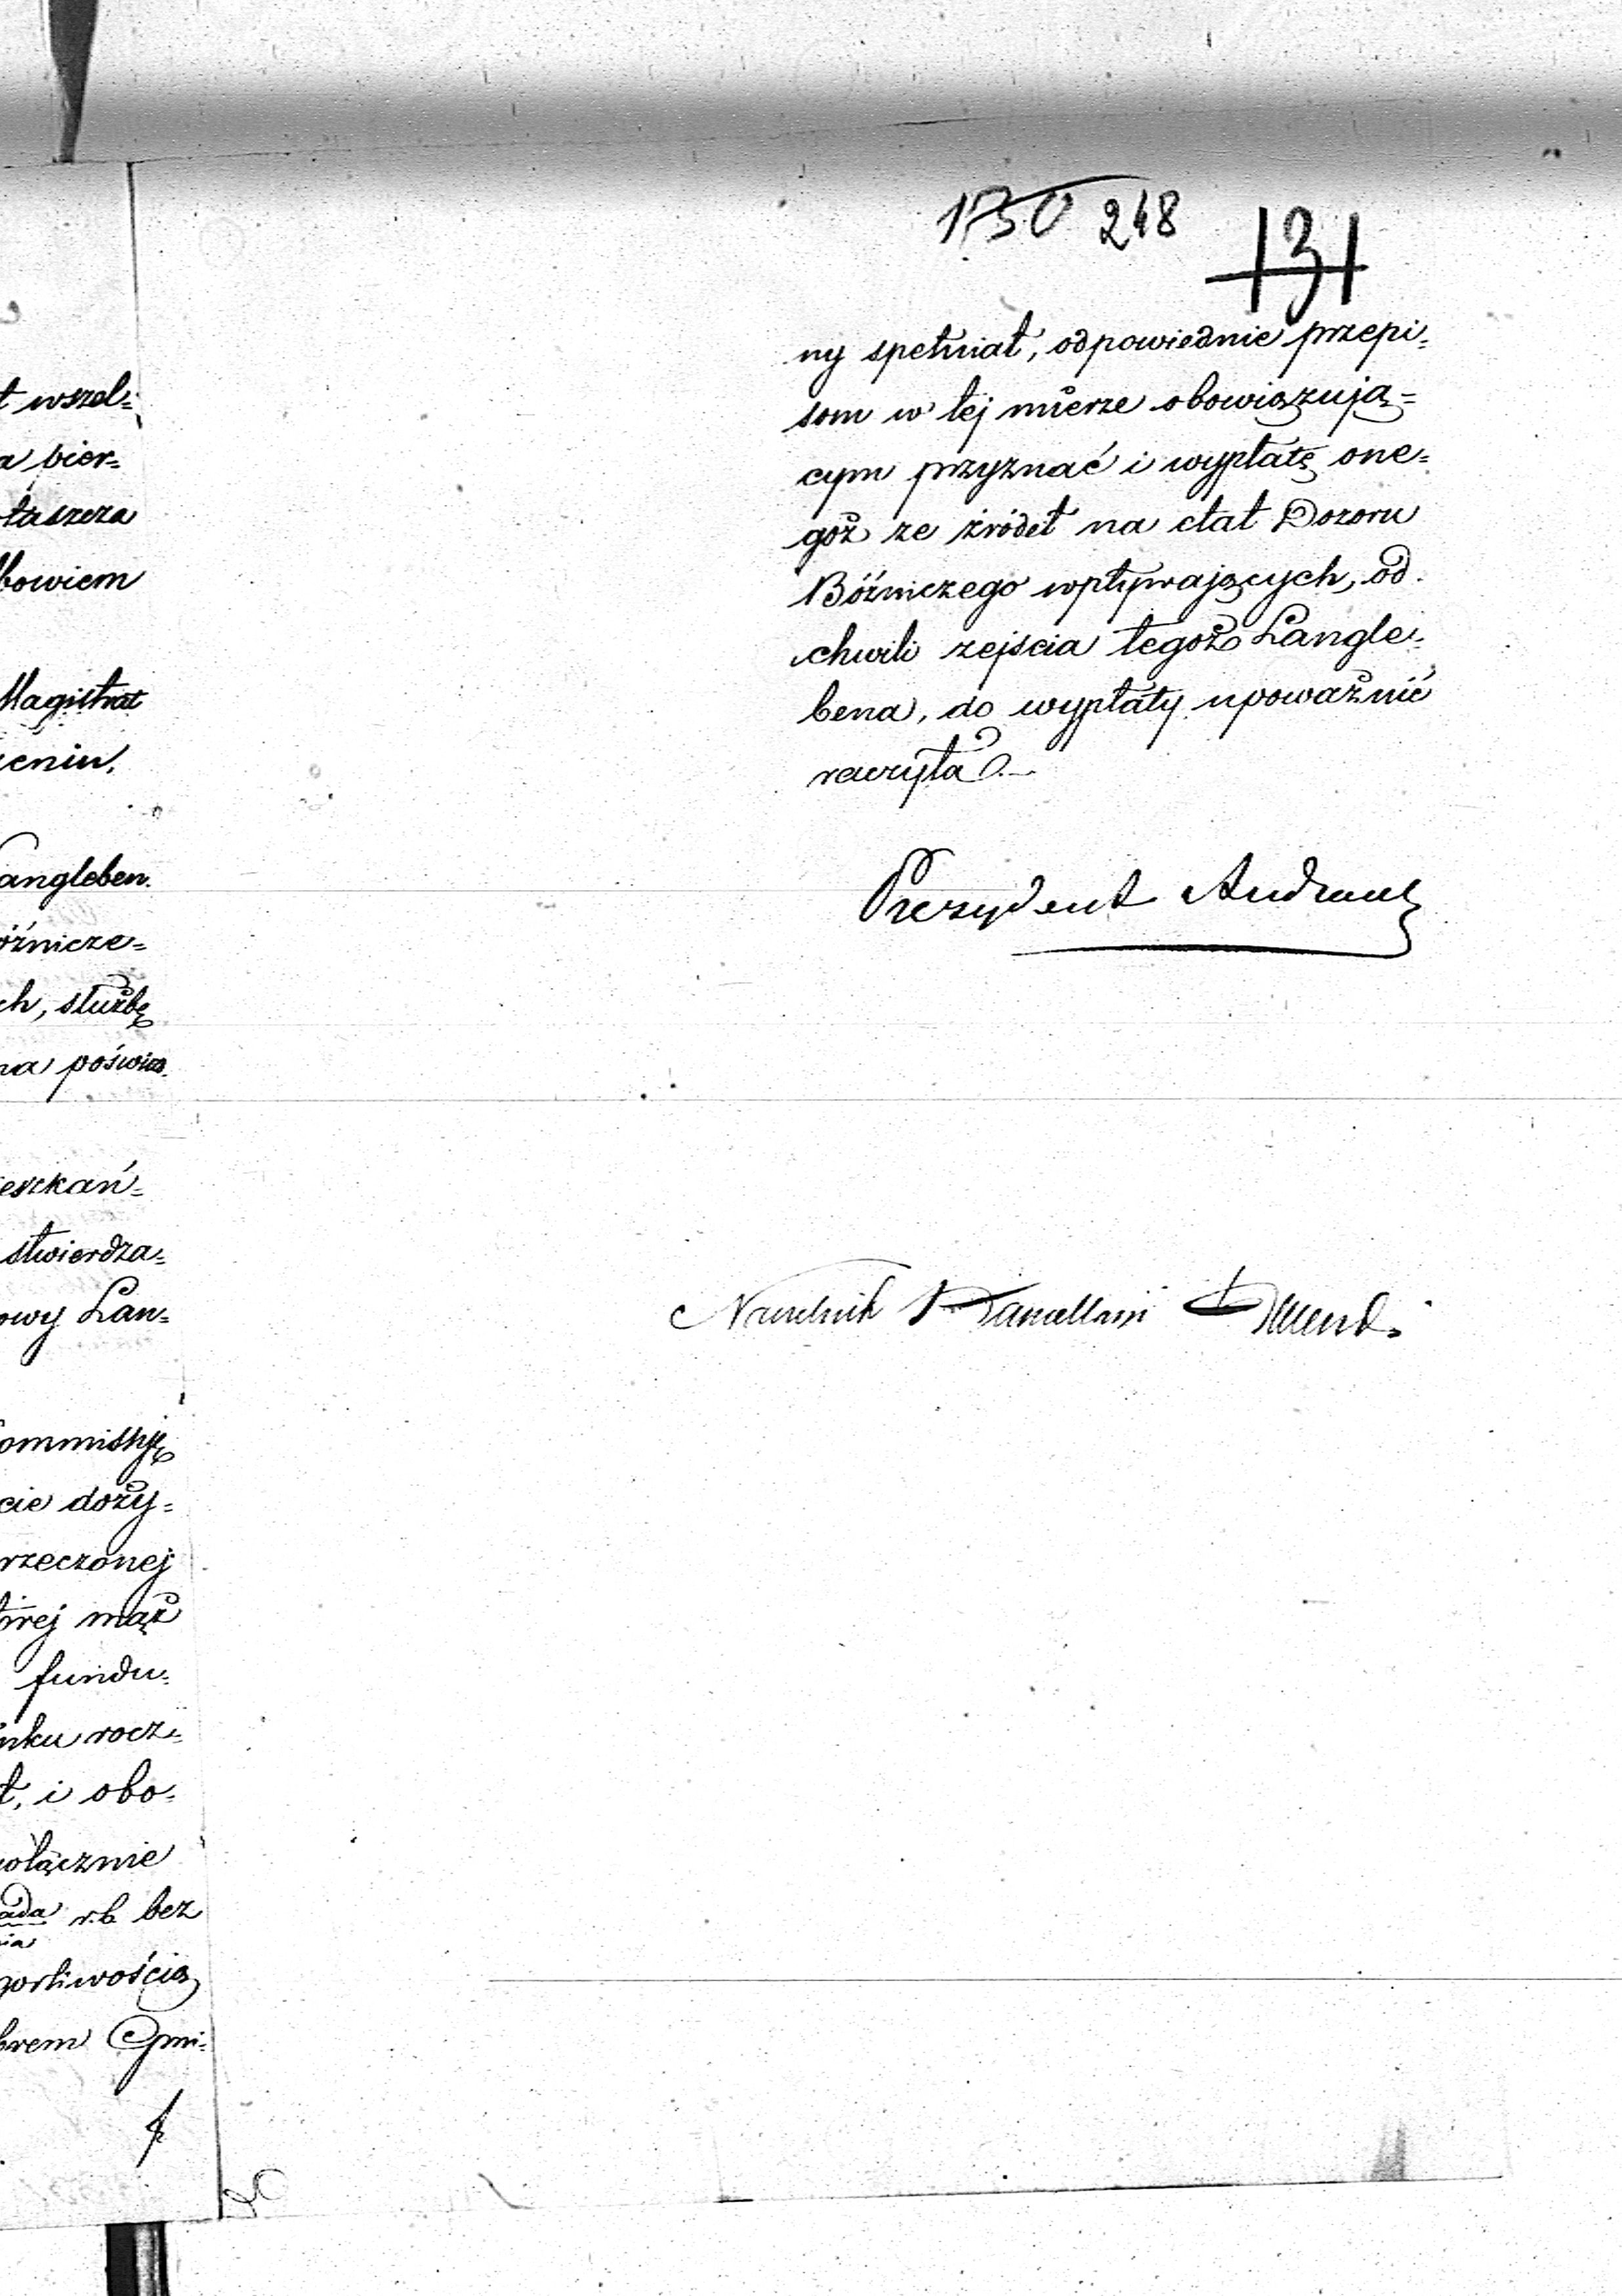 t wszel=
a bier=
łaszcza
bowiem
Magistrat
eniu,
angleben
óźnicze=
ch, służbę
na poświę
eszkań=
stwierdza=
owy Lan=
ommissyę
cie doży=
rzeczonej
tórej mąż
fundu=
nku rocz=
t, i obo=
ołącznie
ada r.b. bez
nia
gorliwością
brem Gmi=
130 248 131
ny spełniał, odpowiednie przepi=
som w tej mierze obowiązują=
cym przyznać i wypłatę one=
goż ze źródeł na etat Dozoru
Bóźniczego wpływających, od
chwili zejścia tegoż Langle=
bena, do wypłaty upoważnić
raczyła.
Prezydent
Naczelnik Kancellaryi